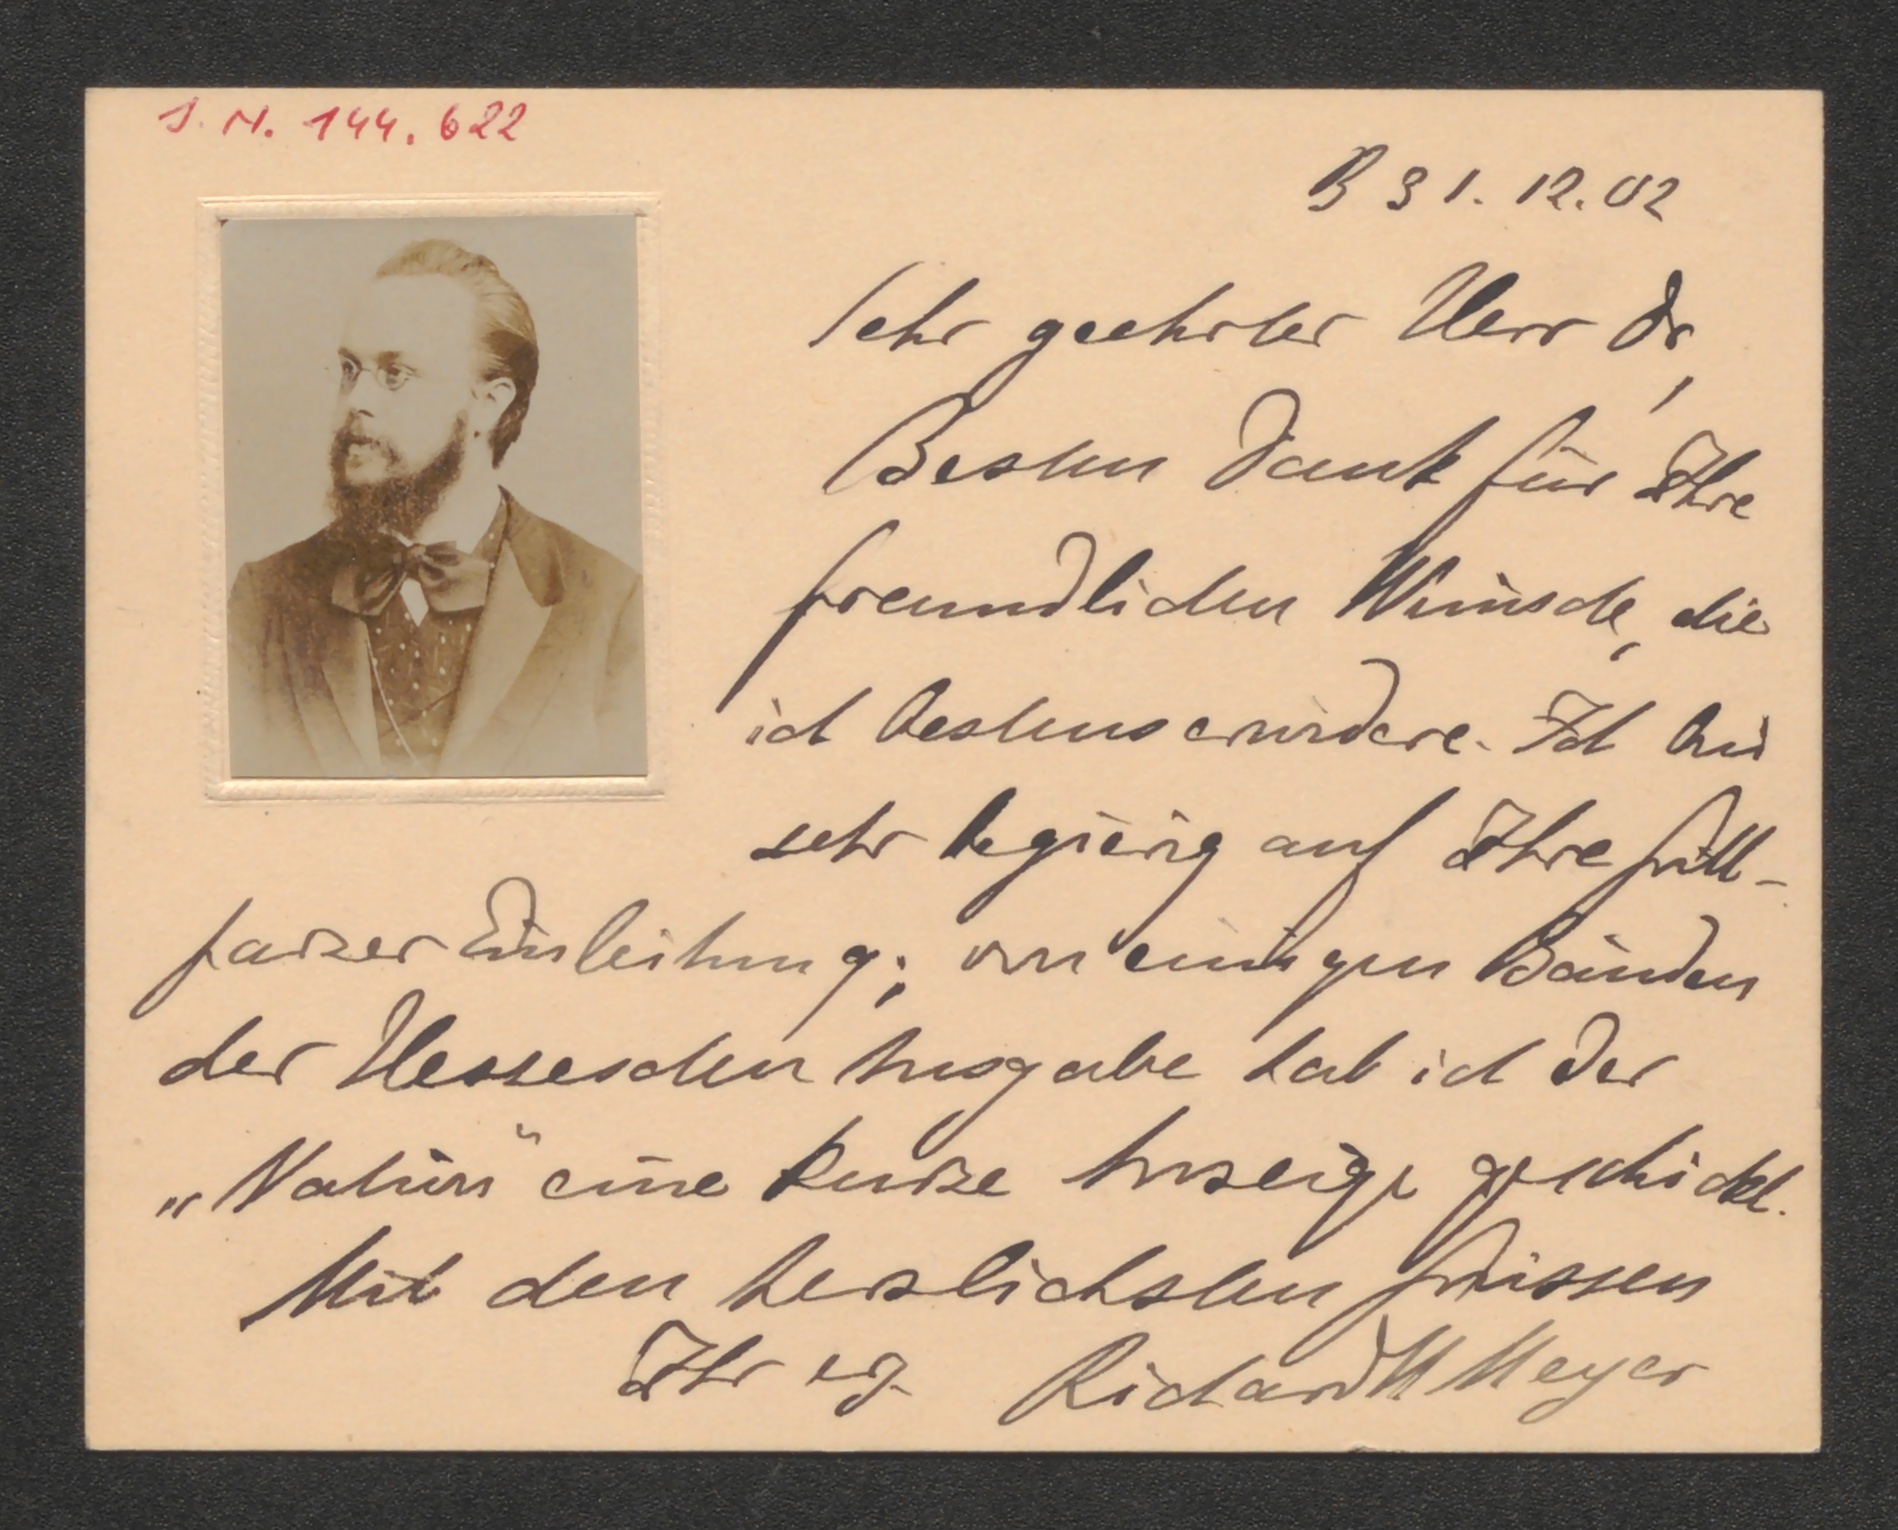 I. N. 144.622
B 31.12.02
Sehr geehrter Herr Dr,
Besten Dank für Ihre
freundlichen Wünsche, die
ich bestens erwidere. Ich bin
sehr begierig auf Ihre Grill-
parzer Einleitung; von einigen Bänden
der Hesseschen Ausgabe hab ich der
„Nation“ eine kurze Anzeige geschickt.
Mit den herzlichsten Grüssen
Ihr erg. Richard M Meyer